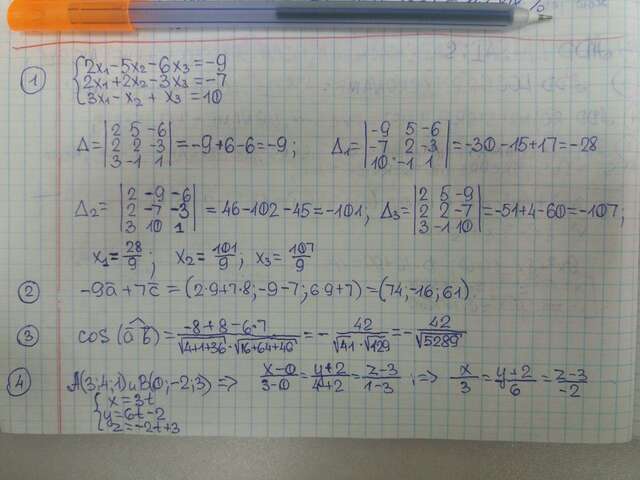 1
{2x₁-5x₂-6x₃=-9
2x₁+2x₂-3x₃=-7
3x₁-x₂+x₃=10
Δ=|2 5 -6; 2 2 -3; 3 -1 1|=-9+6-6=-9; Δ₁=|-9 5 -6; -7 2 -3; 10 -1 1|=-30-15+17=-28
Δ₂=|2 -9 -6; 2 -7 -3; 3 10 1|=46-102-45=-101; Δ₃=|2 5 -9; 2 2 -7; 3 -1 10|=-51+4-60=-107;
x₁=28/9; x₂=101/9; x₃=107/9
2 -9a̅+7c̅=(2·9+7·8;-9-7;6 9+7)=(74;-16;61).
3 cos(a̅ b̅)=(-8+8-6·7)/(√4+1+36·√16+64+49)=-42/(√41·√129)=-42/√5289
4 A(3;4;1) и B(0;-2;3) => (x-0)/(3-0)=(y+2)/(4+2)=(z-3)/(1-3) ;=> x/3=(y+2)/6=(z-3)/-2
{x=3t
y=6t-2
z=-2t+3